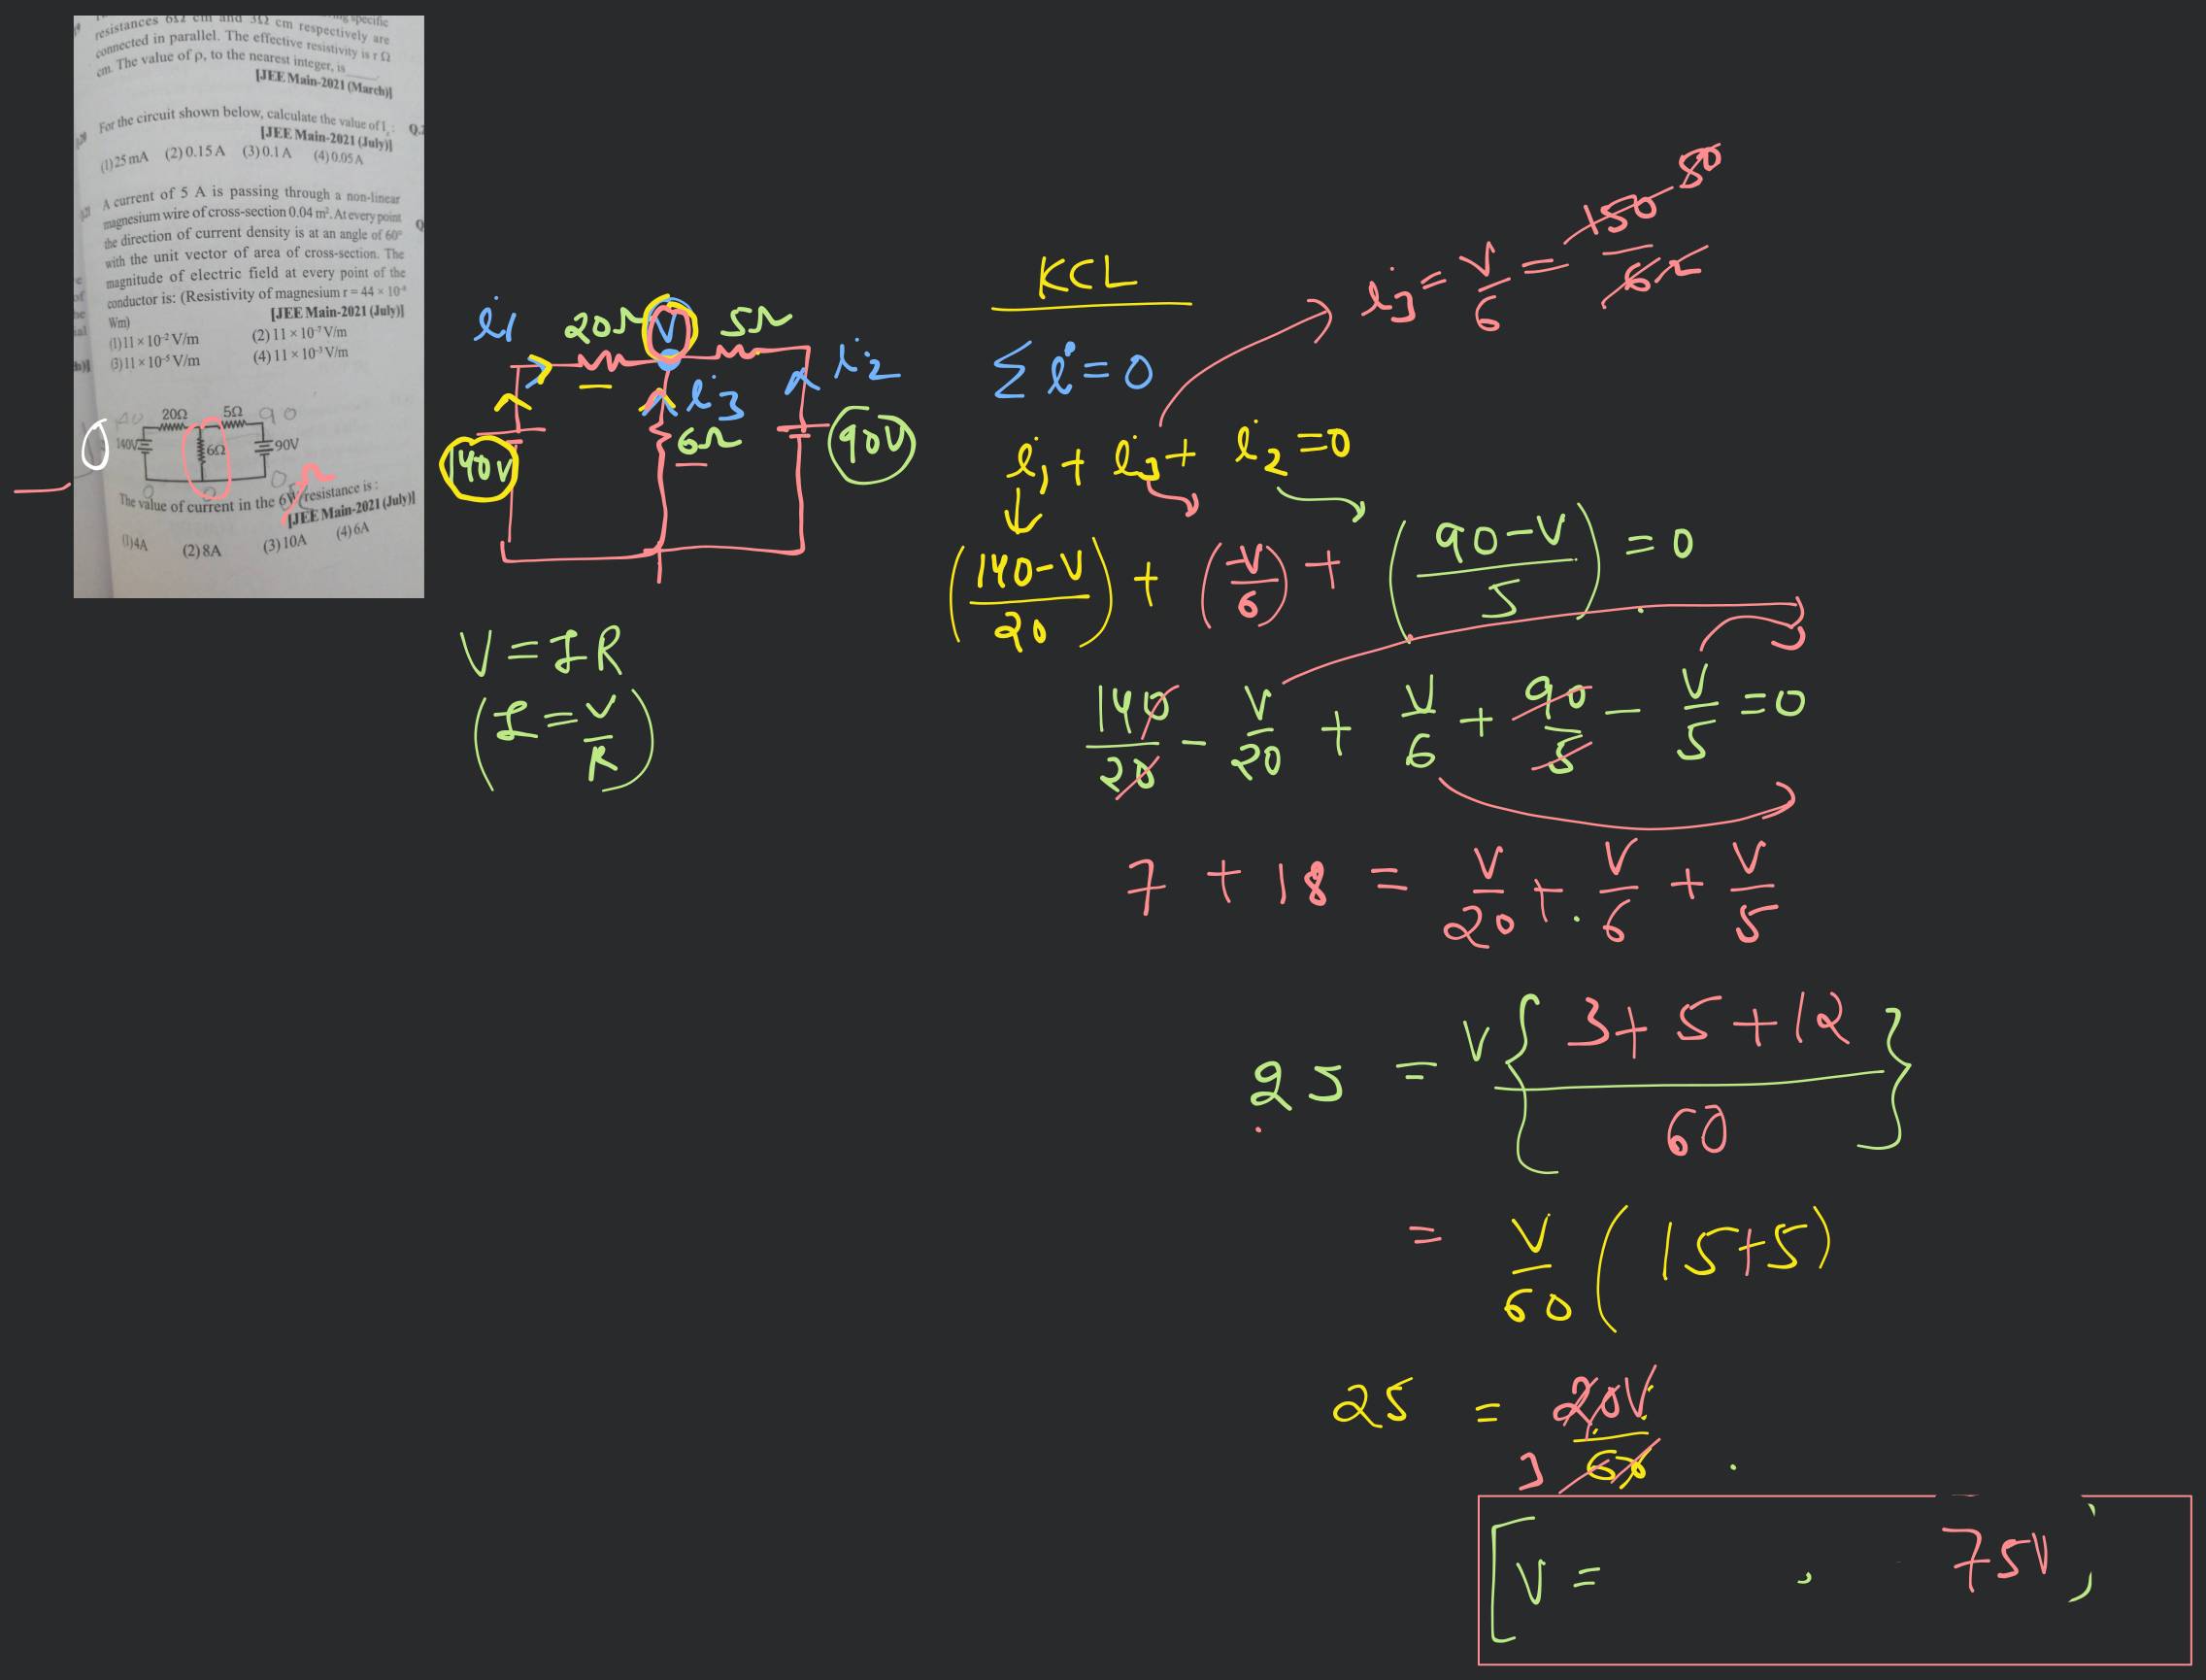 resistances 6Ω cm and 3Ω cm respectively are
connected in parallel. The effective resistivity is r Ω
cm. The value of ρ, to the nearest integer, is ____.
[JEE Main-2021 (March)]
For the circuit shown below, calculate the value of I :
[JEE Main-2021 (July)]
(1) 25 mA (2) 0.15 A (3) 0.1 A (4) 0.05 A
A current of 5 A is passing through a non-linear
magnesium wire of cross-section 0.04 m². At every point
the direction of current density is at an angle of 60°
with the unit vector of area of cross-section. The
magnitude of electric field at every point of the
conductor is: (Resistivity of magnesium r = 44 × 10⁻⁸
Wm)
[JEE Main-2021 (July)]
(1) 11 × 10⁻² V/m (2) 11 × 10⁻⁷ V/m
(3) 11 × 10⁻⁵ V/m (4) 11 × 10⁻³ V/m
20Ω 5Ω 90
140V 6Ω 90V
0 0 0
The value of current in the 6W resistance is :
[JEE Main-2021 (July)]
(1) 4A (2) 8A (3) 10A (4) 6A
i1 20Ω V 5Ω i2
i3
140V 6Ω 90V
V = IR
(I = V/R)
KCL
Σ i = 0
i3 = V/6 = 150/6 50 2
i1 + i3 + i2 = 0
(140-V/20) + (-V/6) + (90-V/5) = 0
140/20 - V/20 + V/6 + 90/5 - V/5 = 0
7 + 18 = V/20 + V/6 + V/5
25 = V{3 + 5 + 12/60}
= V/60 (15+5)
25 = 20V/60
3
V = 75V